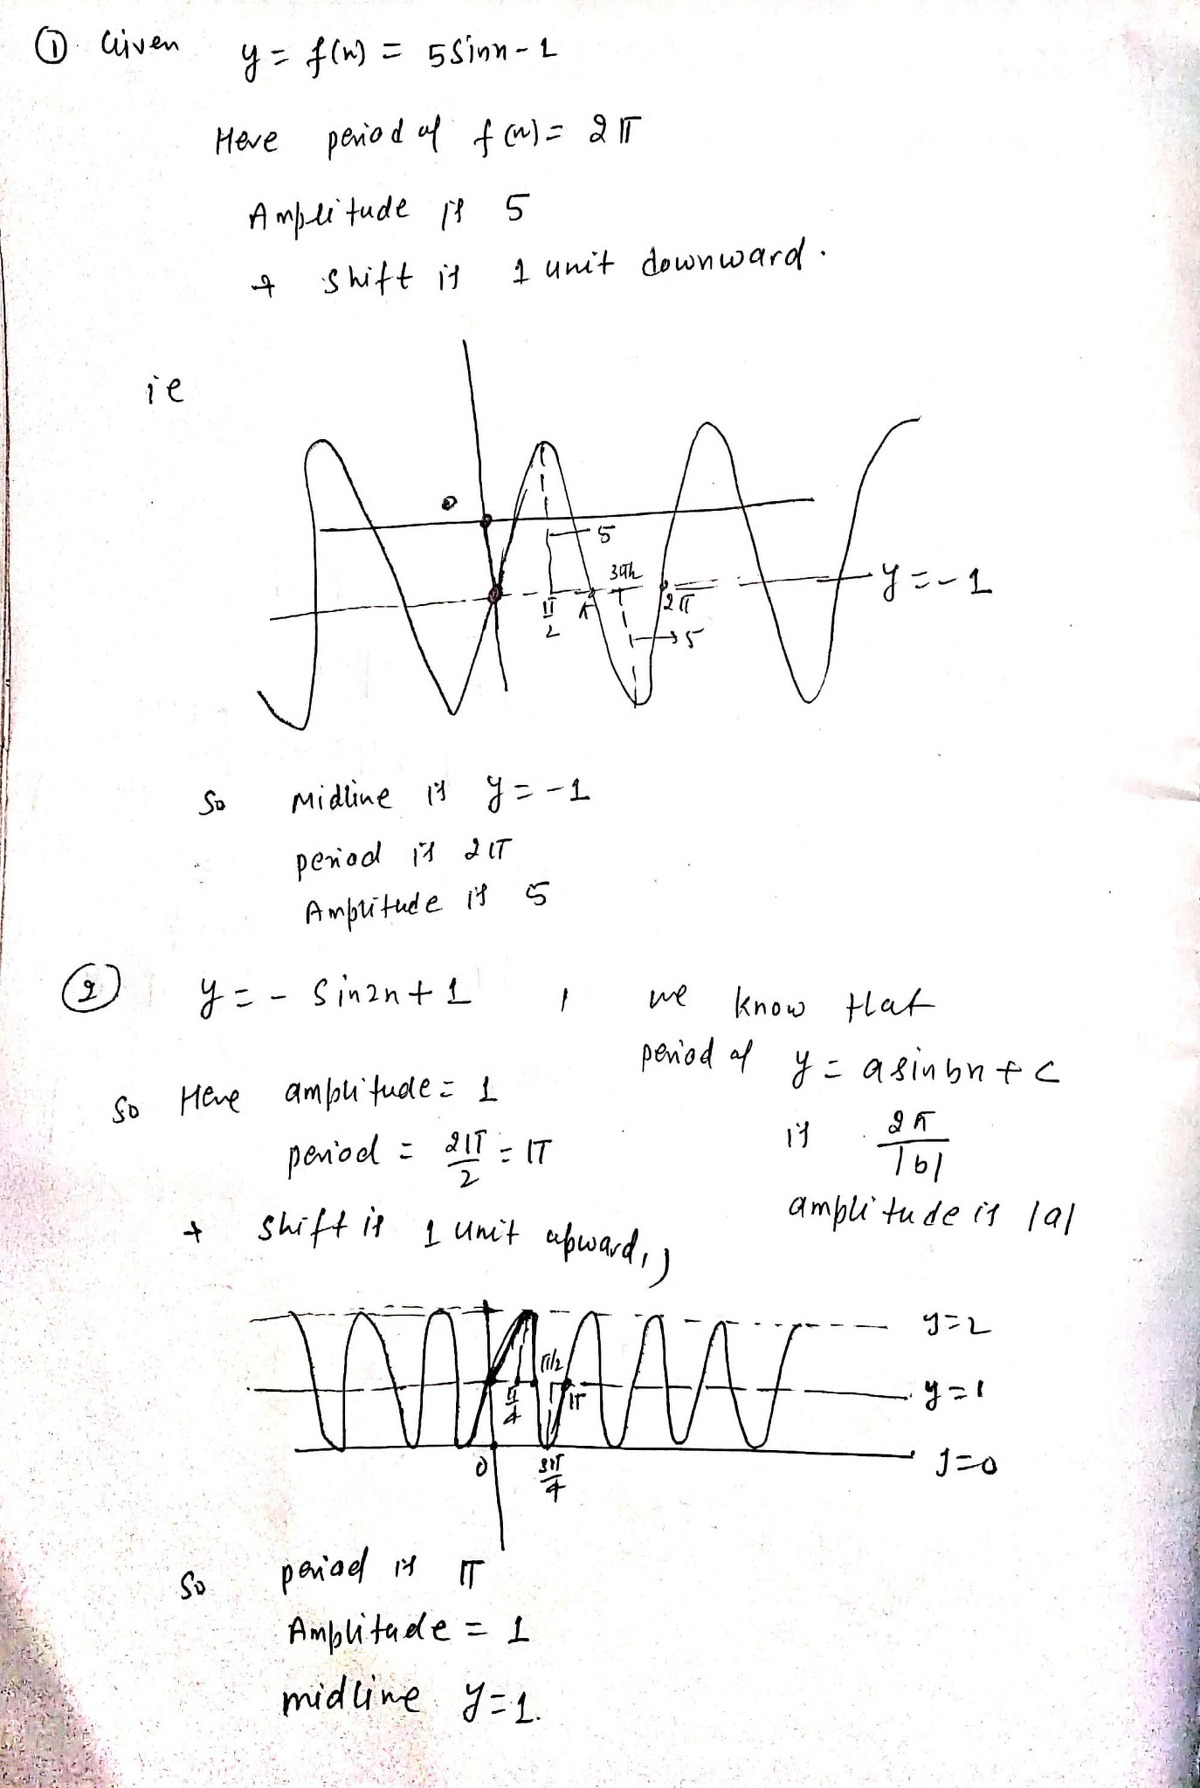 ① Given y = f(x) = 5 sinx - 1
Here period of f(x) = 2π
Amplitude is 5
+ shift is 1 unit downward.
ie
0
5
3π/2
y = -1
π/2
π
2π
5
So Midline is y = -1
period is 2π
Amplitude is 5
② y = - sin2x + 1 , we know that
period of y = a sinbx + c
So Here amplitude = 1
is 2π/|b|
period = 2π/2 = π
amplitude is |a|
+ shift is 1 unit upward,,
y=2
π/2
y=1
π/4
π
y=0
0
3π/4
So period is π
Amplitude = 1
midline y=1.